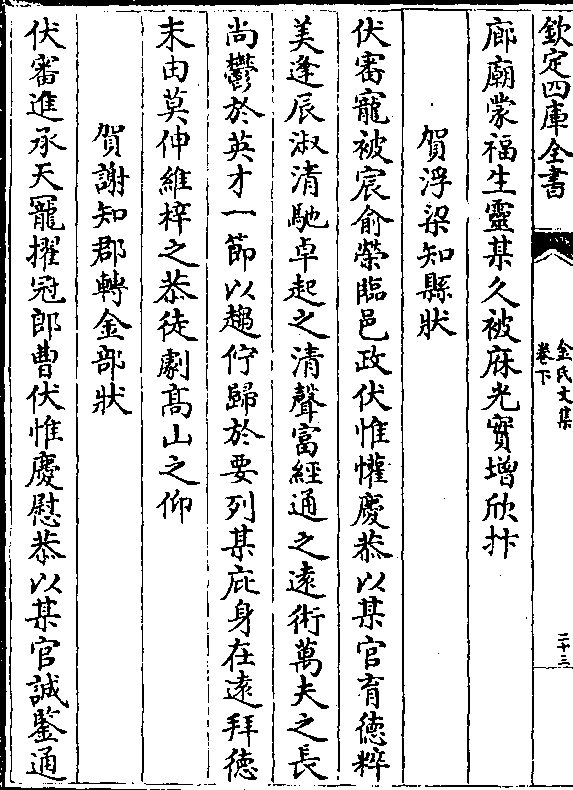 欽定四庫全書
金氏文集
卷下
二十三
廊廟蒙福生靈某久被庥光實增欣抃
賀浮梁知縣狀
伏審寵被宸俞榮臨邑政伏惟懽慶恭以某官育徳粹
美逢辰淑清馳卓起之清聲富經通之逺術萬夫之長
尚鬱於英才一節以趨佇歸於要列某庇身在逺拜徳
末由莫伸維梓之恭徒劇髙山之仰
賀謝知郡轉金部狀
伏審進承天寵擢冠郎曹伏惟慶慰恭以某官誠鑒通